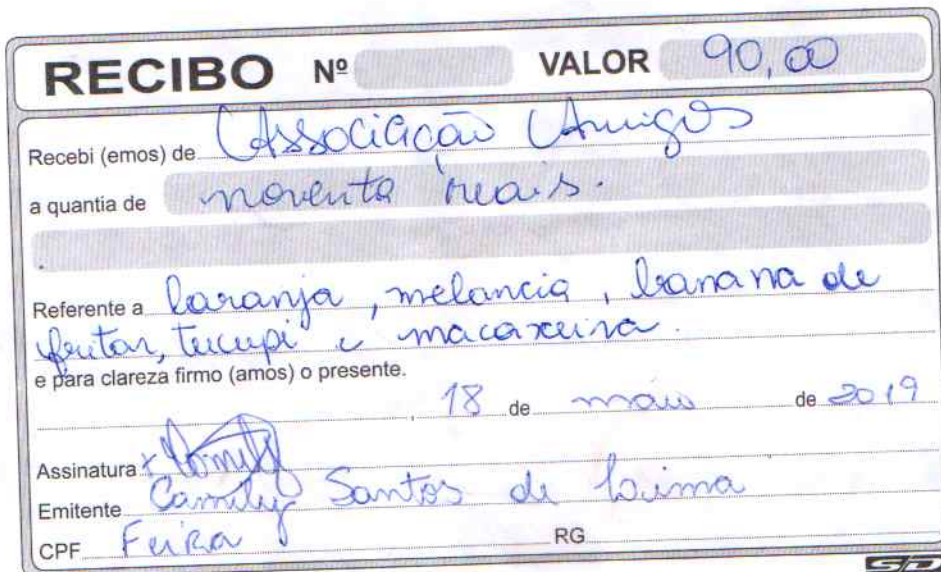 RECIBO Nº VALOR 90,00
Recebi (emos) de Associação Amigos
a quantia de noventa reais.
Referente a laranja, melancia, banana de
fritar, tucupi e macaxeira.
e para clareza firmo (amos) o presente.
, 18 de maio de 2019
Assinatura x
Emitente Camily Santos de Lima
CPF Feira RG
SD